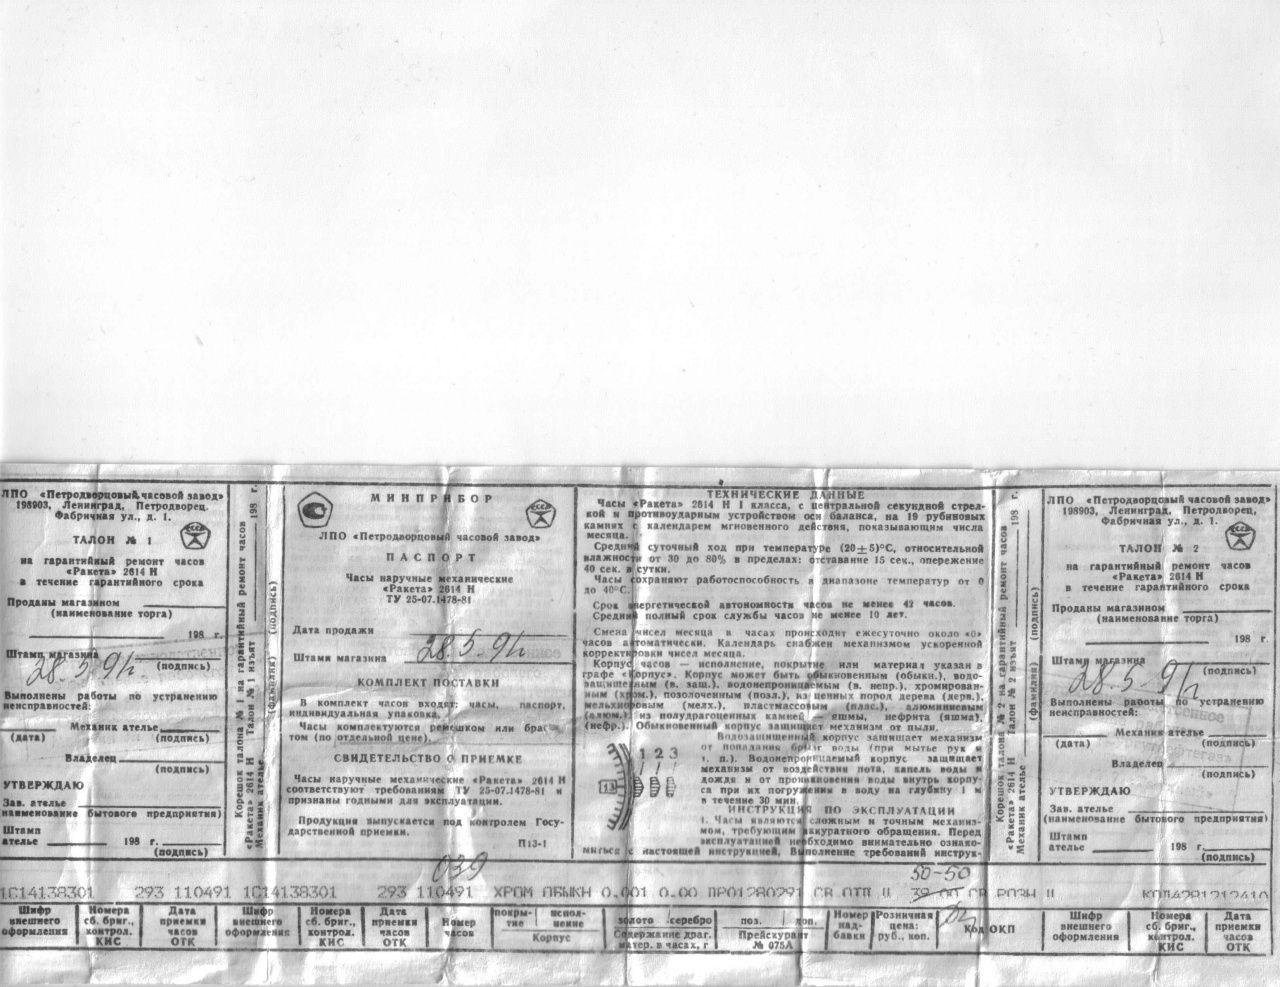 ЛПО «Петродворцовый часовой завод»
198903, Ленинград, Петродворец.
Фабричная ул., д. 1.
ТАЛОН № 1
на гарантийный ремонт часов
«Ракета» 2614 Н
в течение гарантийного срока
Проданы магазином
(наименование торга)
198 г.
Штамп магазина
(подпись)
28.5.91г
Выполнены работы по устранению
неисправностей:
Механик ателье
(дата) (подпись)
Владелец
(подпись)
УТВЕРЖДАЮ
Зав. ателье
(наименование бытового предприятия)
Штамп
ателье 198 г.
(подпись)
Корешок талона № 1 на гарантийный ремонт часов
«Ракета» 2614 Н Талон № 1 изъят 198 г.
Механик ателье (фамилия) (подпись)
МИНПРИБОР
ЛПО «Петродворцовый часовой завод»
ПАСПОРТ
Часы наручные механические
«Ракета» 2614 Н
ТУ 25-07.1478-81
Дата продажи
28.5.91г
Штамп магазина
КОМПЛЕКТ ПОСТАВКИ
В комплект часов входят: часы, паспорт,
индивидуальная упаковка.
Часы комплектуются ремешком или брас
том (по отдельной цене).
СВИДЕТЕЛЬСТВО О ПРИЕМКЕ
Часы наручные механические «Ракета» 2614 Н
соответствуют требованиям ТУ 25-07.1478-81 и
признаны годными для эксплуатации.
Продукция выпускается под контролем Госу-
дарственной приемки.
П13-1
ТЕХНИЧЕСКИЕ ДАННЫЕ
Часы «Ракета» 2614 Н I класса, с центральной секундной стрел-
кой и противоударным устройством оси баланса, на 19 рубиновых
камнях с календарем мгновенного действия, показывающим числа
месяца.
Средний суточный ход при температуре (20±5)°С, относительной
влажности от 30 до 80% в пределах: отставание 15 сек., опережение
40 сек. в сутки.
Часы сохраняют работоспособность в диапазоне температур от 0
до 40°С.
Срок энергетической автономности часов не менее 42 часов.
Средний полный срок службы часов не менее 10 лет.
Смена чисел месяца в часах происходит ежесуточно около «0»
часов автоматически. Календарь снабжен механизмом ускоренной
корректировки чисел месяца.
Корпус часов — исполнение, покрытие или материал указан в
графе «Корпус». Корпус может быть обыкновенным (обыкн.), водо-
защищенным (в. защ.), водонепроницаемым (в. непр.), хромирован-
ным (хром.), позолоченным (позл.), из ценных пород дерева (дерв.)
мельхиоровым (мелх.), пластмассовым (плас.), алюминиевым
(алюм.), из полудрагоценных камней — яшмы, нефрита (яшма),
(нефр.). Обыкновенный корпус защищает механизм от пыли.
Водозащищенный корпус защищает механизм
от попадания брызг воды (при мытье рук и
т. п.). Водонепроницаемый корпус защищает
механизм от воздействия пота, капель воды и
дождя и от проникновения воды внутрь корпу-
са при их погружении в воду на глубину 1 м
в течение 30 мин.
1 2 3
13
ИНСТРУКЦИЯ ПО ЭКСПЛУАТАЦИИ
1. Часы являются сложным и точным механиз-
мом, требующим аккуратного обращения. Перед
эксплуатацией необходимо внимательно ознако-
миться с настоящей инструкцией. Выполнение требований инструк-
Корешок талона № 2 на гарантийный ремонт часов
«Ракета» 2614 Н Талон № 2 изъят 198 г.
Механик ателье (фамилия) (подпись)
ЛПО «Петродворцовый часовой завод»
198903, Ленинград, Петродворец,
Фабричная ул., д. 1.
ТАЛОН № 2
на гарантийный ремонт часов
«Ракета» 2614 Н
в течение гарантийного срока
Проданы магазином
(наименование торга)
198 г.
Штамп магазина
(подпись)
28.5.91г
Выполнены работы по устранению
неисправностей:
Механик ателье
(дата) (подпись)
Владелец
(подпись)
УТВЕРЖДАЮ
Зав. ателье
(наименование бытового предприятия)
Штамп
ателье 198 г.
(подпись)
039
50-50
1С14138301 293 110491 1С14138301 293 110491 ХРОМ ОБЫКН 0.001 0.00 ПР01280291 СВ ОТП Ц 39-00 СВ РОЗН Ц
Шифр внешнего оформления
Номера сб. бриг., контрол. КИС
Дата приемки часов ОТК
Шифр внешнего оформления
Номера сб. бриг., контрол. КИС
Дата приемки часов ОТК
Номер часов
покры-тие
испол-нение
Корпус
золото серебро
Содержание драг. матер. в часах, г
поз. доп.
Прейскурант № 075А
Номер над-бавки
Розничная цена: руб., коп.
Код ОКП
Шифр внешнего оформления
Номера сб. бриг., контрол. КИС
Дата приемки часов ОТК